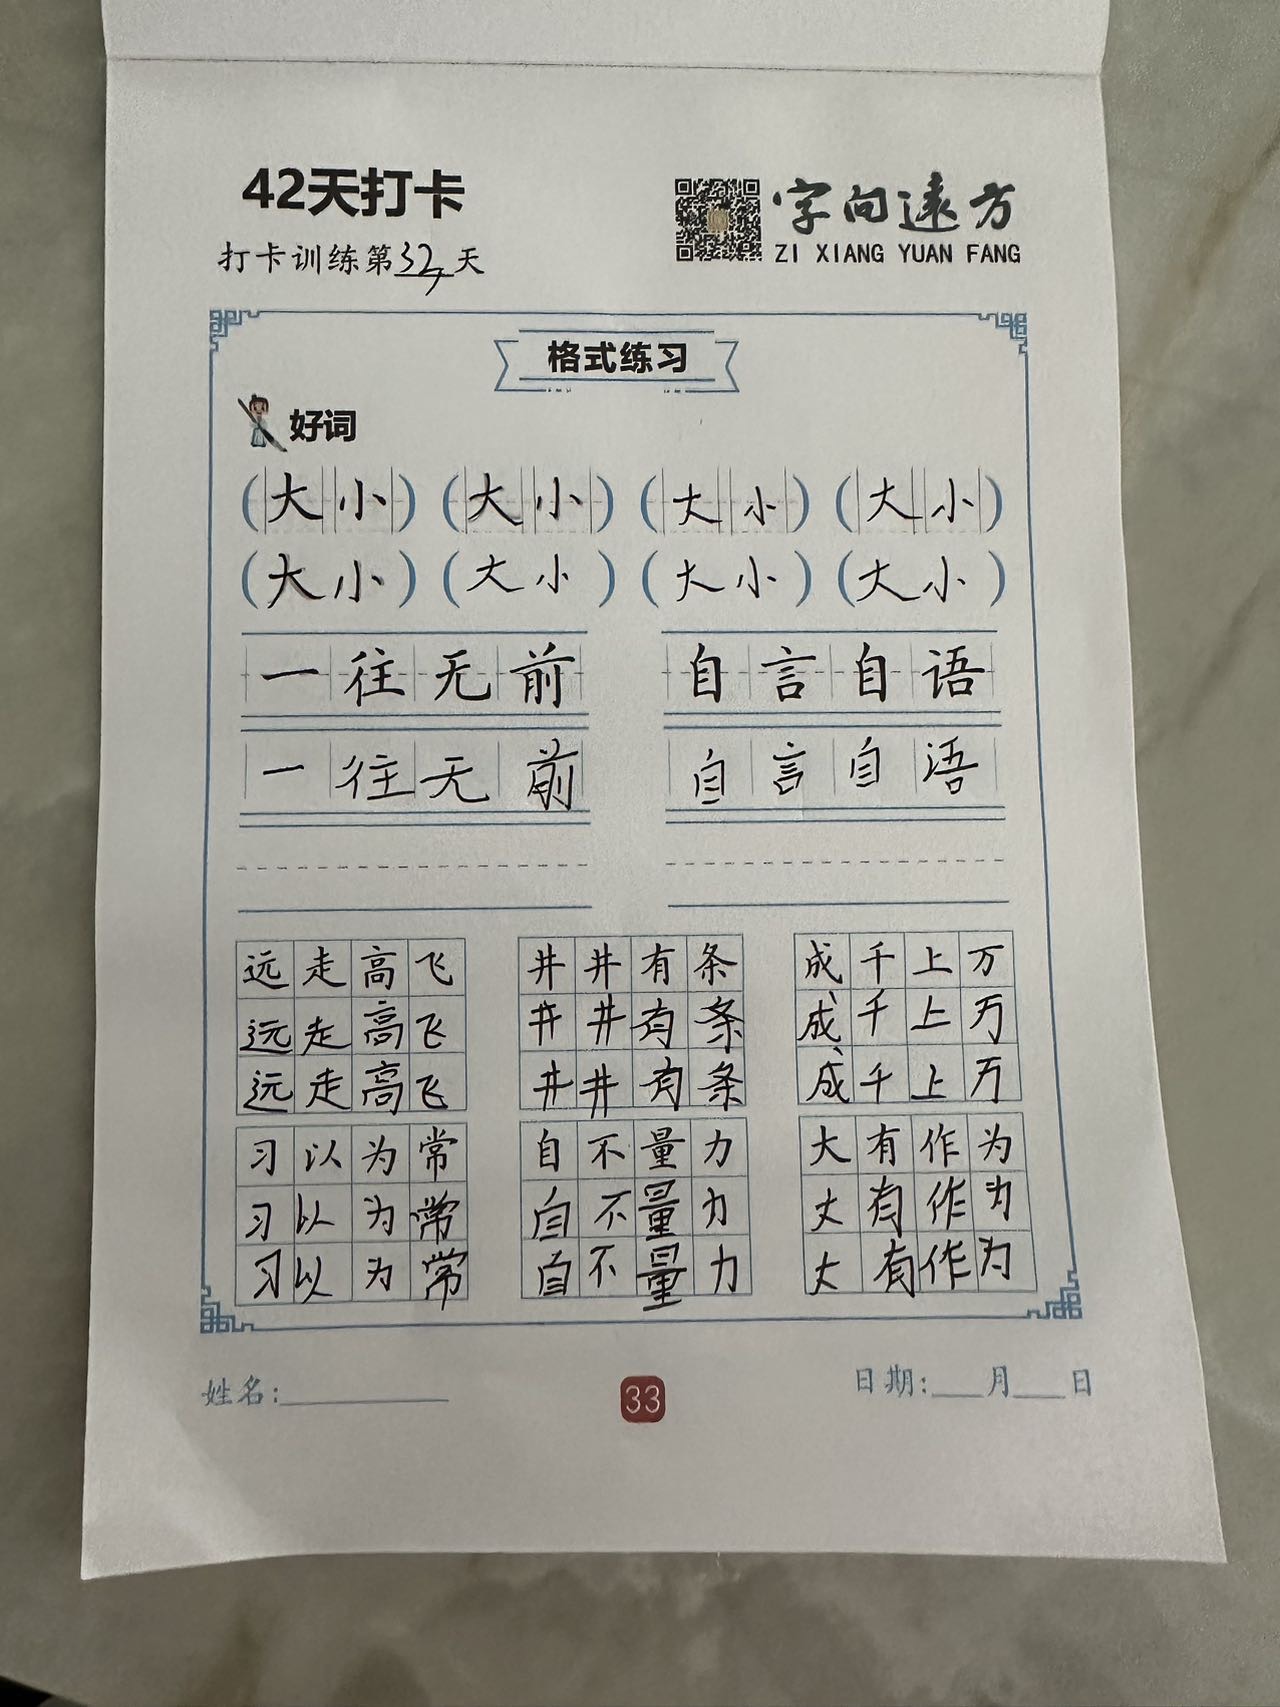 42天打卡
字向远方
ZI XIANG YUAN FANG
打卡训练第32天
格式练习
好词
(大小) (大小) (大小) (大小)
(大小) (大小) (大小) (大小)
一往无前 自言自语
一往无前 自言自语
远走高飞 井井有条 成千上万
远走高飞 井井有条 成千上万
远走高飞 井井有条 成千上万
习以为常 自不量力 大有作为
习以为常 自不量力 大有作为
习以为常 自不量力 大有作为
姓名:
33
日期: 月 日